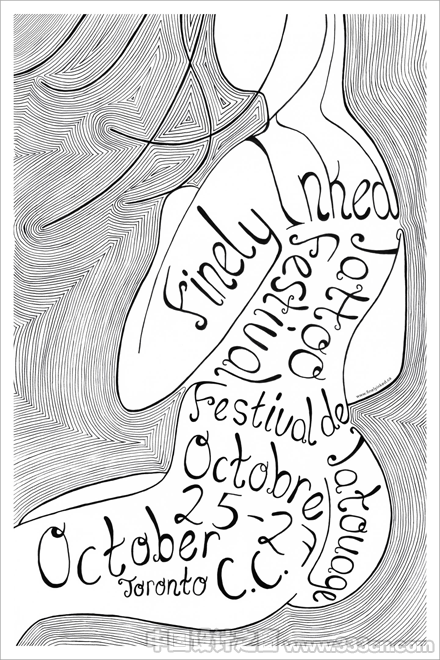 Finely Inked
Tattoo
Festival
Festival de
Tatouage
Octobre
25-27
October
Toronto C.C.
www.finelyinked.ca
中国设计之窗 www.333cn.com